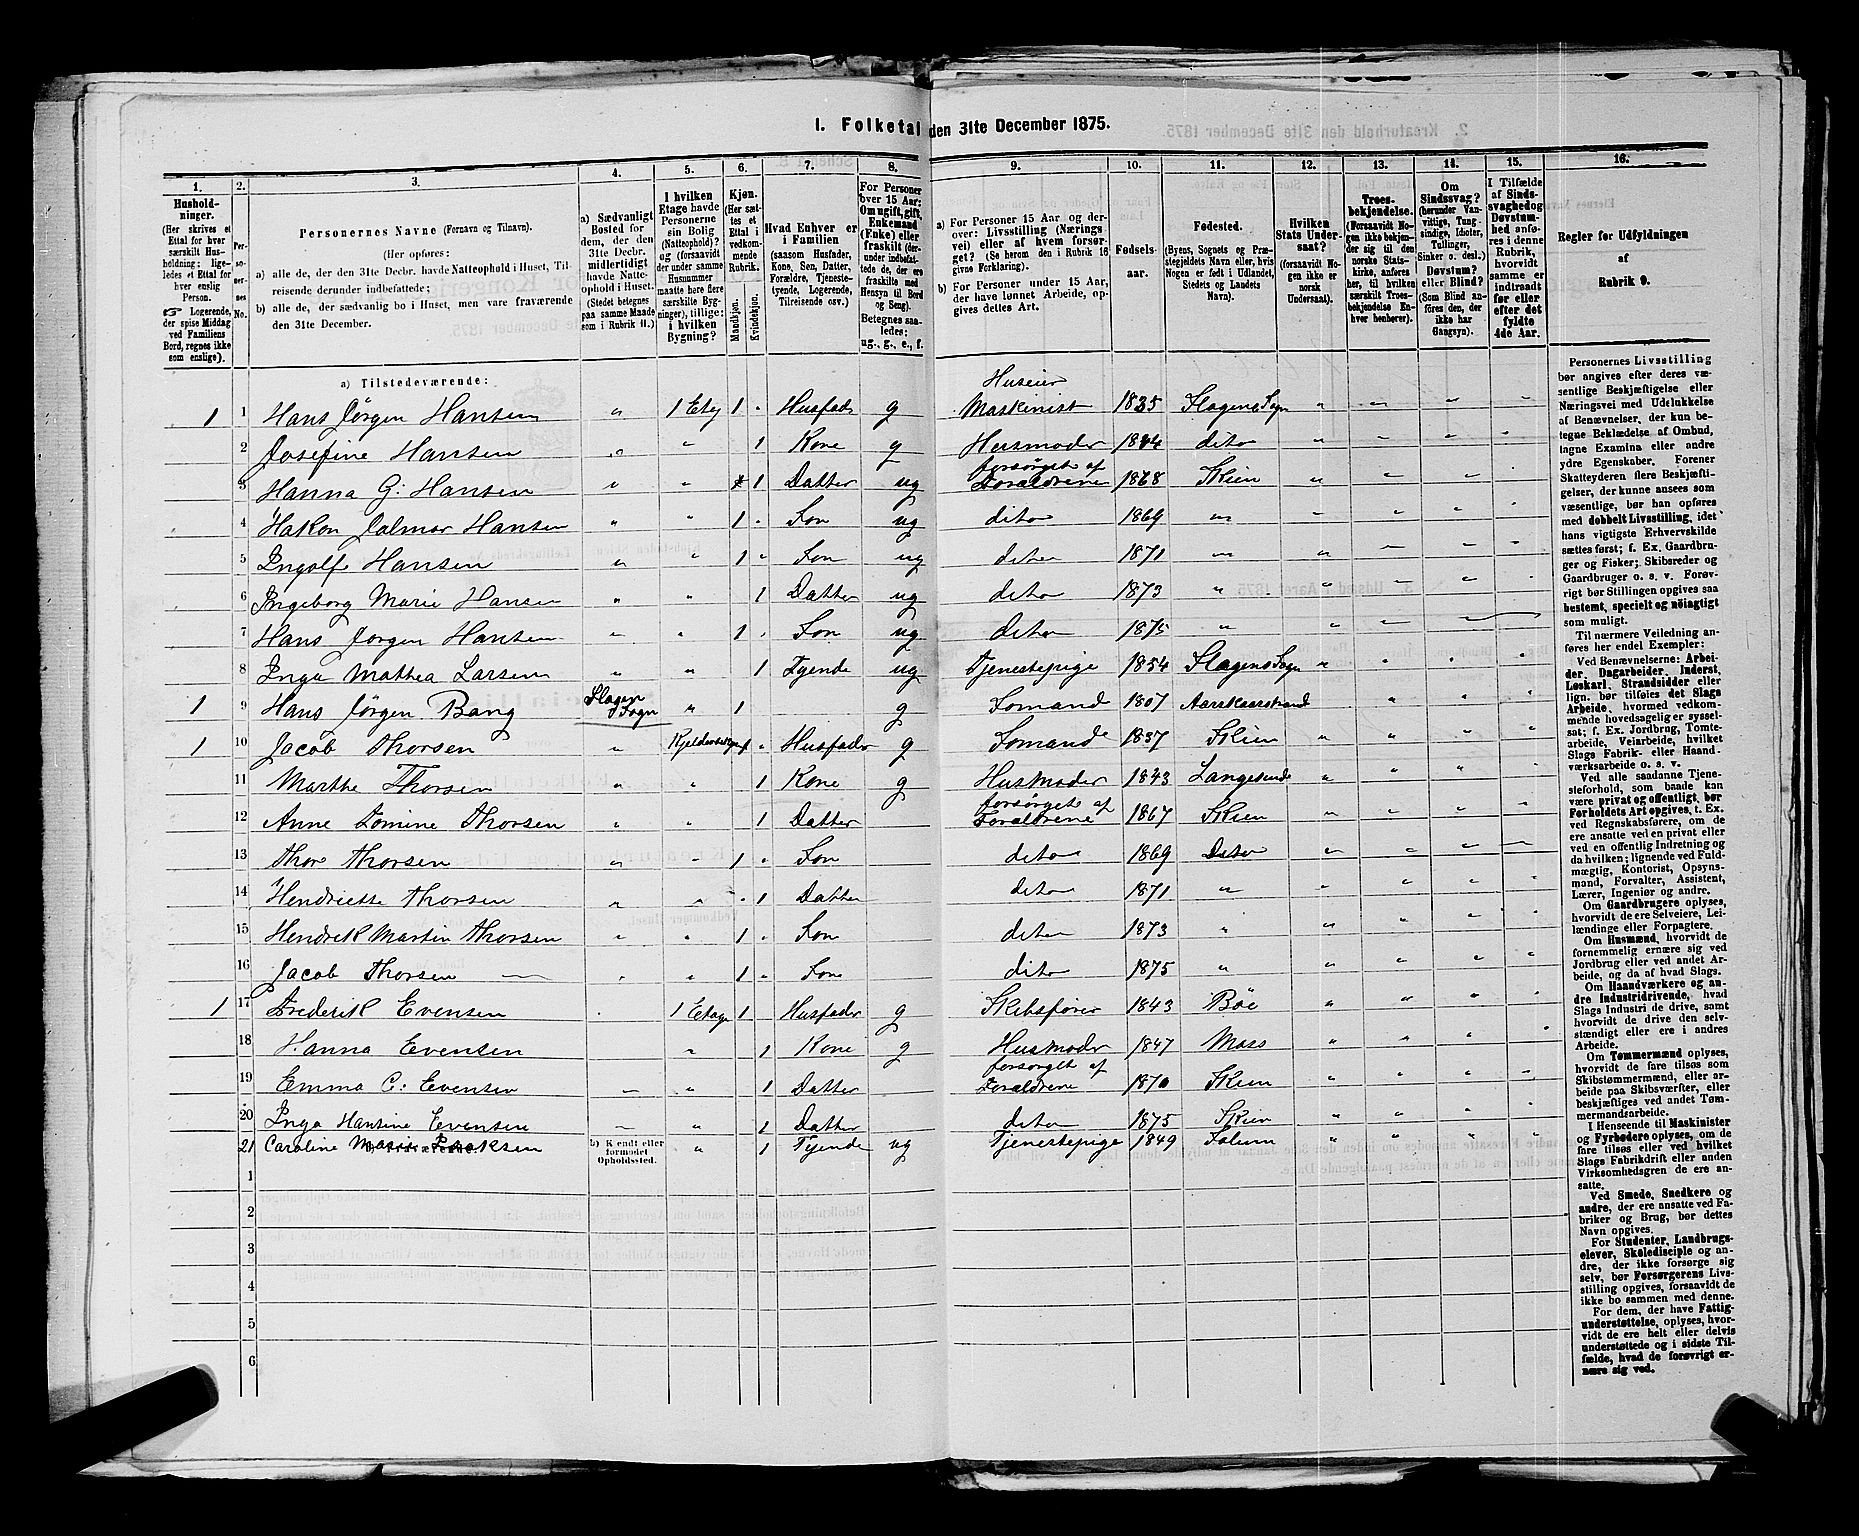 1. Folketal den 31te December 1875.
1. 2. 3. 4. 5. 6. 7. 8. 9. 10. 11. 12. 13. 14. 15. 16.
Hushold-
ninger.
(Her skrives et
Ettal for hver
særskilt Hus-
holdning; lige-
ledes et Ettal for
hver enslig
Person.
☞ Logerende,
der spise Middag
ved Familiens
Bord, regnes ikke
som enslige).
Per-
so-
ner-
nes
No.
Personernes Navne (Fornavn og Tilnavn).
(Her opføres:
a) alle de, der den 31te Decbr. havde Natteophold i Huset, Til-
reisende derunder indbefattede;
b) alle de, der sædvanlig bo i Huset, men vare fraværende
den 31te December.
a) Sædvanligt
Bosted for
dem, der den
31te Decbr.
midlertidigt
havde Natte-
ophold i Huset.
(Stedet betegnes
paa samme Maade
som i Rubrik 11.)
I hvilken
Etage havde
Personerne
sin Bolig
(Natteophold)?
og (forsaavidt
der under samme
Husnummer
maatte høre flere
særskilte Byg-
ninger), tillige:
i hvilken
Bygning?
Kjøn.
(Her sæt-
tes et
Ettal i
vedkom-
mende
Rubrik.
Mandkjøn.
Kvindekjøn.
Hvad Enhver er
i Familien
(saasom Husfader,
Kone, Søn, Datter,
Forældre, Tjeneste-
tyende, Logerende,
Tilreisende osv.)
For Personer
over 15 Aar:
Om ugift, gift,
Enkemand
(Enke) eller
fraskilt (der-
under indbefat-
tede de, der ere
fraskilte med
Hensyn til Bord
og Seng).
Betegnes saa-
ledes:
ug., g., e., f.
a) For Personer 15 Aar og der-
over: Livsstilling (Nærings-
vei) eller af hvem forsør-
get? (Se herom den i Rubrik 16
givne Forklaring).
b) For Personer under 15 Aar,
der have lønnet Arbeide, op-
gives dettes Art.
Fødsels-
aar.
Fødested.
(Byens, Sognets og Præ-
stegjeldets Navn eller, hvis
Nogen er født i Udlandet,
Stedets og Landets
Navn).
Hvilken
Stats Under-
saat?
(forsaavidt No-
gen ikke er
norsk
Undersaat).
Troes-
bekjendelse.
(Forsaavidt No-
gen ikke bekjen-
der sig til den
norske Stats-
kirke, anføres
her, til hvilken
særskilt Troes-
bekjendelse En-
hver henhører).
Om
Sindssvag?
(herunder Van-
vittige, Tung-
sindige, Idioter,
Tullinger,
Sinker o. desl.)
Døvstum?
eller Blind?
(Som Blind an-
føres den, der
ikke har
Gangsyn).
I Tilfælde
af Sinds-
svaghed og
Døvstum-
hed anfø-
res i denne
Rubrik,
hvorvidt
samme er
indtraadt
før eller
efter det
fyldte
4de Aar.
Regler for Udfyldningen
af
Rubrik 9.
a) Tilstedeværende:
Huseier
1 1 Hans Jörgen Hansen „ 1 Etg 1 „ Husfadr g Maskinist 1835 Slagens Sogn
2 Josefine Hansen „ „ 1 Kone g Husmoder 1844 dito
3 Hanna G: Hansen „ „ 1 Datter ug forsörget af Foraldrene 1868 Skien
4 Hakon Jalmar Hansen „ „ 1 Son ug dito 1869 „
5 Ingolf Hansen „ „ 1 Son ug dito 1871 „
6 Ingeborg Marie Hansen „ „ 1 Datter ug dito 1873 „
7 Hans Jörgen Hansen „ „ 1 Son ug dito 1875 „
8 Inga Mathea Larsen „ „ 1 Tyende ug Tjenestepige 1854 Slagens Sogn
1 9 Hans Jörgen Bang Slagen Sogn „ 1 g Somand 1807 Aasgaarstrand
1 10 Jacob Thorsen „ 1 „ Husfadr g Somand 1837 Skien
11 Marthe Thorsen „ „ 1 Kone g Husmoder 1843 Langesunde
12 Anne Tomine Thorsen „ „ 1 Datter forsörget af Foraldrene 1867 Skien
13 Thor Thorsen „ „ 1 „ Son dito 1869 Dito
14 Hendriette Thorsen „ „ 1 Datter dito 1871 „
15 Hendrik Martin Thorsen „ „ 1 „ Son dito 1873 „
16 Jacob Thorsen „ „ 1 „ Son dito 1875 „
1 17 Frederik Evensen 1 Etage 1 Husfadr g Skibsförer 1843 Böe
18 Hanna Evensen „ 1 Kone g Husmodr 1847 Moss
19 Emma C: Evensen „ „ 1 Datter forsörget af Foraldrene 1870 Skien
20 Inga Hansine Evensen „ „ 1 Datter dito 1875 Skien
21 Caroline Marie Isaksen b) Kjendt eller formodet Opholdssted. „ 1 Tyende ug Tjenestepige 1849 Solum
1
2
3
4
5
6
Personernes Livsstilling
bør angives efter deres væ-
sentlige Beskjæftigelse eller
Næringsvei med Udelukkelse
af Benævnelser, der kun be-
tegne Beklædelse af Ombud,
tagne Examina eller andre
ydre Egenskaber. Forener
Skatteyderen flere Beskjæfti-
gelser, der kunne ansees som
væsentlige, bør han opføres
med dobbelt Livsstilling, idet
hans vigtigste Erhvervskilde
sættes først; f. Ex. Gaardbru-
ger og Fisker; Skibsreder og
Gaardbruger o. s. v. Forøv-
rigt bør Stillingen opgives saa
bestemt, specielt og nöiagtigt
som muligt.
Til nærmere Veiledning an-
føres her endel Exempler:
Ved Benævnelserne: Arbei-
der, Dagarbeider, Inderst,
Løskarl, Strandsidder eller
lign. bør tilføies det Slags
Arbeide, hvormed vedkom-
mende hovedsagelig er syssel-
sat; f. Ex. Jordbrug, Tomte-
arbeide, Veiarbeide, hvilket
Slags Fabrik- eller Haand-
værksarbeide o. s. v.
Ved alle saadanne Tjene-
steforhold, som baade kan
være privat og offentligt, bør
Forholdets Art opgives, t. Ex.
ved Regnskabsførere, om de
ere ansatte ved en privat eller
ved en offentlig Indretning og
da hvilken; lignende ved Fuld-
mægtig, Kontorist, Opsyns-
mand, Forvalter, Assistent,
Lærer, Ingeniør og andre.
Om Gaardbrugere oplyses,
hvorvidt de ere Selveiere, Lei-
lændinge eller Forpagtere.
Om Husmænd, hvorvidt de
fornemmelig ernære sig ved
Jordbrug eller ved andet Ar-
beide, og da af hvad Slags.
Om Haandværkere og an-
dre Industridrivende, hvad
Slags Industri de drive, samt
hvorvidt de drive den selv-
stændigt eller ere i andres
Arbeide.
Om Tømmermænd oplyses,
hvorvidt de fare tilsøs som
Skibstømmermænd, eller ar-
beide paa Skibsværfter, eller
beskjæftiges ved andet Tøm-
mermandsarbeide.
I Henseende til Maskinister
og Fyrbødere oplyses, om de
fare tilsøs eller ved hvilket
Slags Fabrikdrift eller anden
Virksomhedsgren de ere an-
satte.
Ved Smede, Snedkere og
andre, der ere ansatte ved Fa-
briker og Brug, bør dettes
Navn opgives.
For Studenter, Landbrugs-
elever, Skoledisciple og an-
dre, der ikke forsørge sig
selv, bør Forsørgerens Livs-
stilling opgives, forsaavidt de
ikke bo sammen med denne.
For dem, der have Fattig-
understøttelse, oplyses, hvor-
vidt de ere helt eller delvis
understøttede og i sidste Til-
fælde, hvad de forøvrigt er-
nære sig ved.